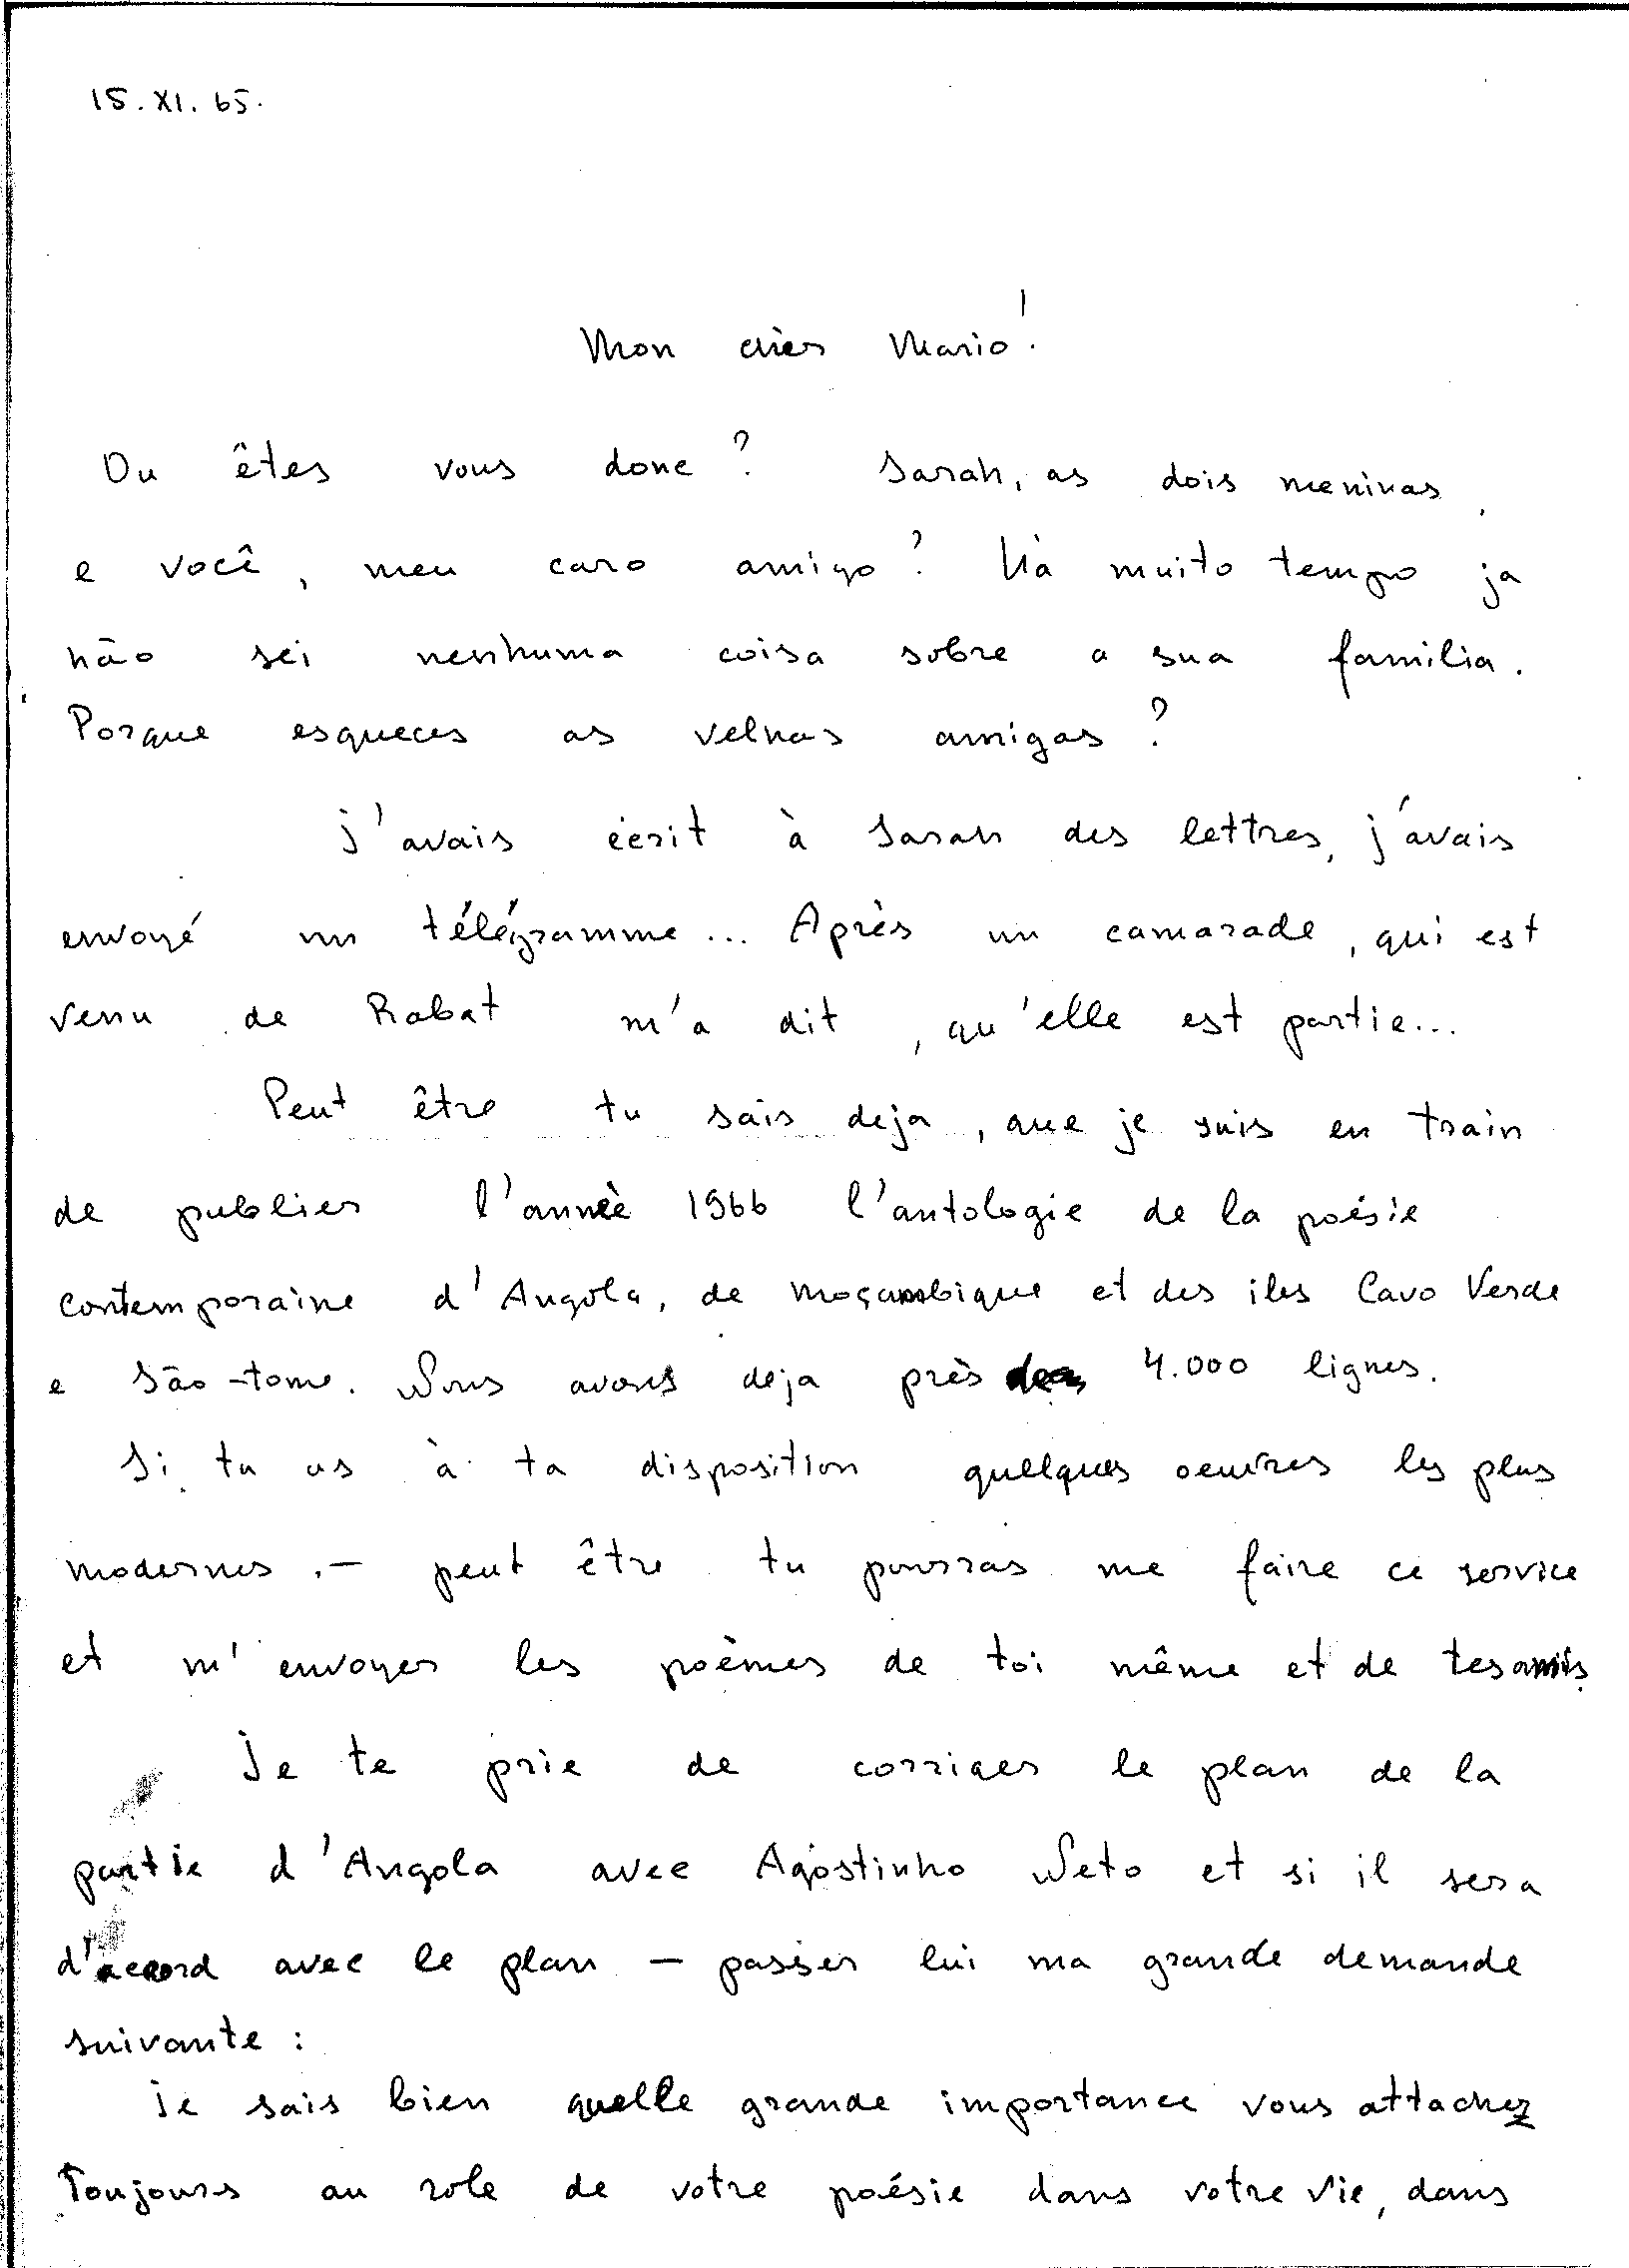 15. XI. 65.
Mon chèr Mario!
Ou êtes vous donc? Sarah, as dois meninas,
e você, meu caro amigo? Hà muito tempo ja
não sei nenhuma coisa sobre a sua familia.
Porque esqueces as velhas amigas?
J'avais écrit à Sarah des lettres, j'avais
envoyé un télégramme... Après un camarade, qui est
venu de Rabat m'a dit, qu'elle est partie...
Peut être tu sais deja, que je suis en train
de publier l'année 1966 l'antologie de la poésie
contemporaine d'Angola, de Moçambique et des iles Cavo Verde
e São-tome. Nous avons deja près de 4.000 lignes.
Si tu as à ta disposition quelques oeuvres les plus
modernes, - peut être tu pourras me faire ce service
et m'envoyer les poèmes de toi même et de tes amis.
Je te prie de corriger le plan de la
partie d'Angola avec Agostinho Neto et si il sera
d'accord avec le plan - passer lui ma grande demande
suivante:
Je sais bien quelle grande importance vous attachez
Toujours au role de votre poésie dans votre vie, dans